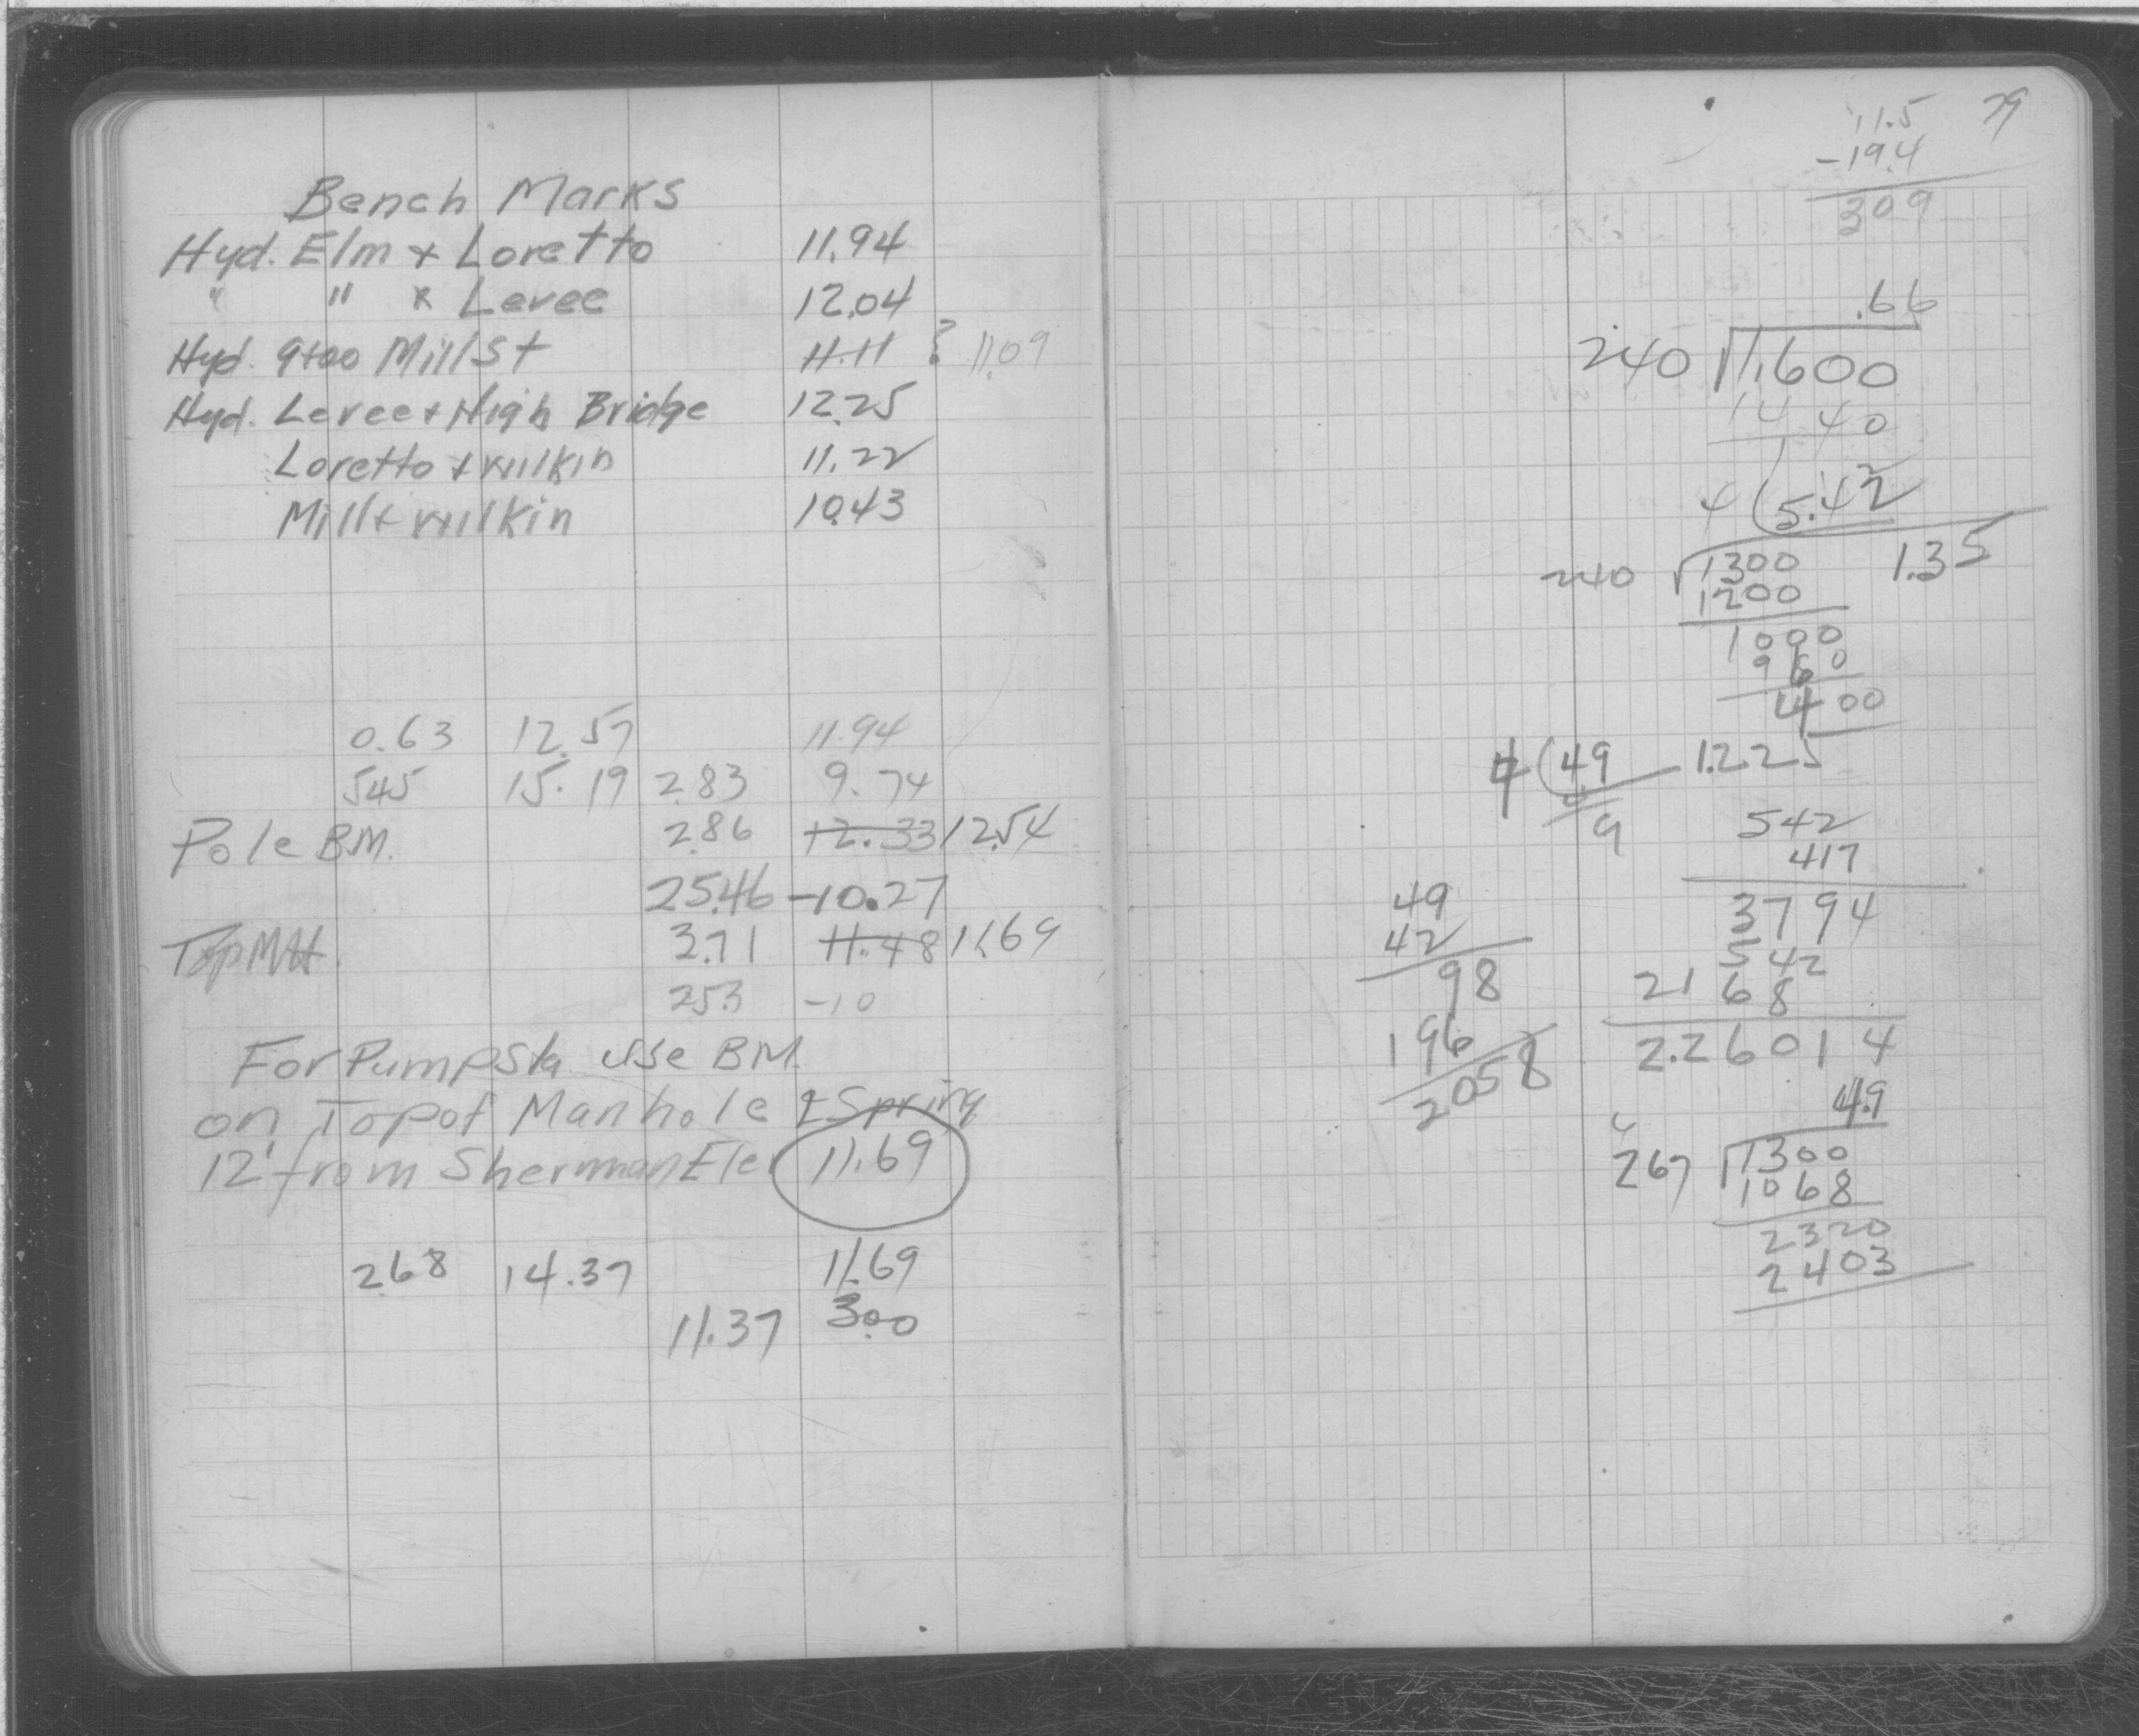 Bench Marks
Hyd. Elm + Loretto 11.94
" " x Levee 12.04
Hyd. 9+00 Mill St 11.11 ? 11.09
Hyd. Levee + High Bridge 12.25
Loretto + Wilkin 11.22
Mill + Wilkin 10.43
0.63 12.57 11.94
5.45 15.19 2.83 9.74
Pole BM. 2.86 12.33 12.54
25.46 -10.27
Top MH. 3.71 11.48 11.69
25.3 -10
For Pump Sta use BM.
on Top of Manhole & Spring
12' from Sherman Elev 11.69
2.68 14.37 11.69
11.37 3.00
79
11.5
-19.4
309
.66
240 1.600
14 40
4 5.42
240 1300 1.35
1200
1000
960
400
4 49 1.225
4
9
542
417
3794
542
2168
2.26014
49
42
98
196
2058
4.9
267 1300
1068
2320
2403